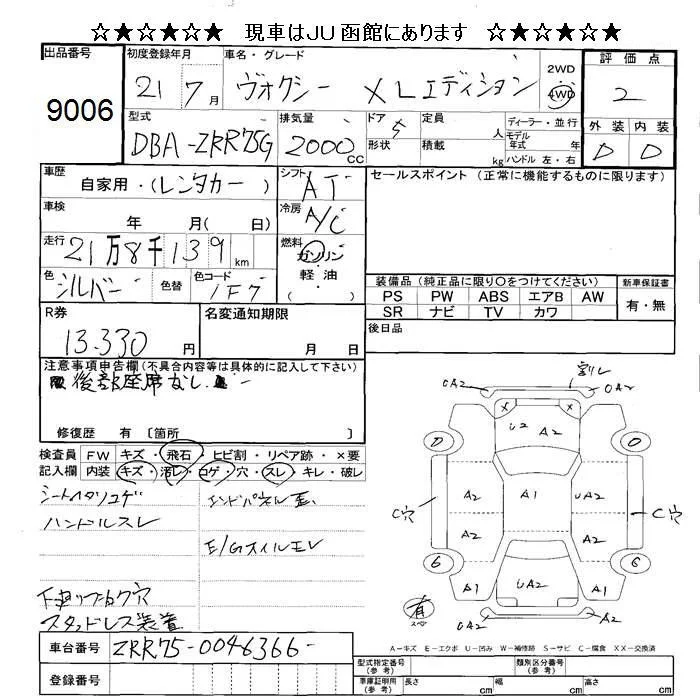 ☆★☆★☆★ 現車はJU函館にあります ☆★☆★☆★
出品番号 9006
初度登録年月 21 7月
車名・グレード ヴォクシー XLエディション
2WD 4WD
評価点 2
型式 DBA-ZRR75G
排気量 2000 cc
ドア 5 形状
定員 人 積載 kg
ディーラー・並行
モデル年式 年
ハンドル 左・右
外装 D 内装 D
車歴 自家用・(レンタカー)
シフト AT
セールスポイント (正常に機能するものに限ります)
車検 年 月( 日)
冷房 A/C
走行 21万8千139km
燃料 ガソリン・軽油・( )
色 シルバー 色替 色コード 1F7
装備品(純正品に限り○をつけてください) 新車保証書
PS PW ABS エアB AW 有・無
SR ナビ TV カワ
R券 13.330円
名変通知期限 月 日
後日品
注意事項申告欄(不具合内容等は具体的に記入して下さい)
後部座席なし
修復歴 有〔箇所 〕
検査員記入欄 FW キズ・飛石・ヒビ割・リペア跡・×要
内装 キズ・汚レ・コゲ・穴・スレ・キレ・破レ
シートヘタリコゲ
エンドパネル歪
ハンドルスレ
E/Gオイルモレ
スタッドレス装着
割レ
UA2 UA2
× ×
U2 A2
C穴 A2 A1 UA2 C穴
A2 A2
6
A1 UA2 A1
有
UA2 UA2
車台番号 ZRR75-0046366-
A-キズ E-エクボ U-凹み W-補修跡 S-サビ C-腐食 XX-交換済
登録番号
型式指定番号(参考) 類別区分番号(参考)
車庫証明用(参考) 長さ cm 幅 cm 高さ cm